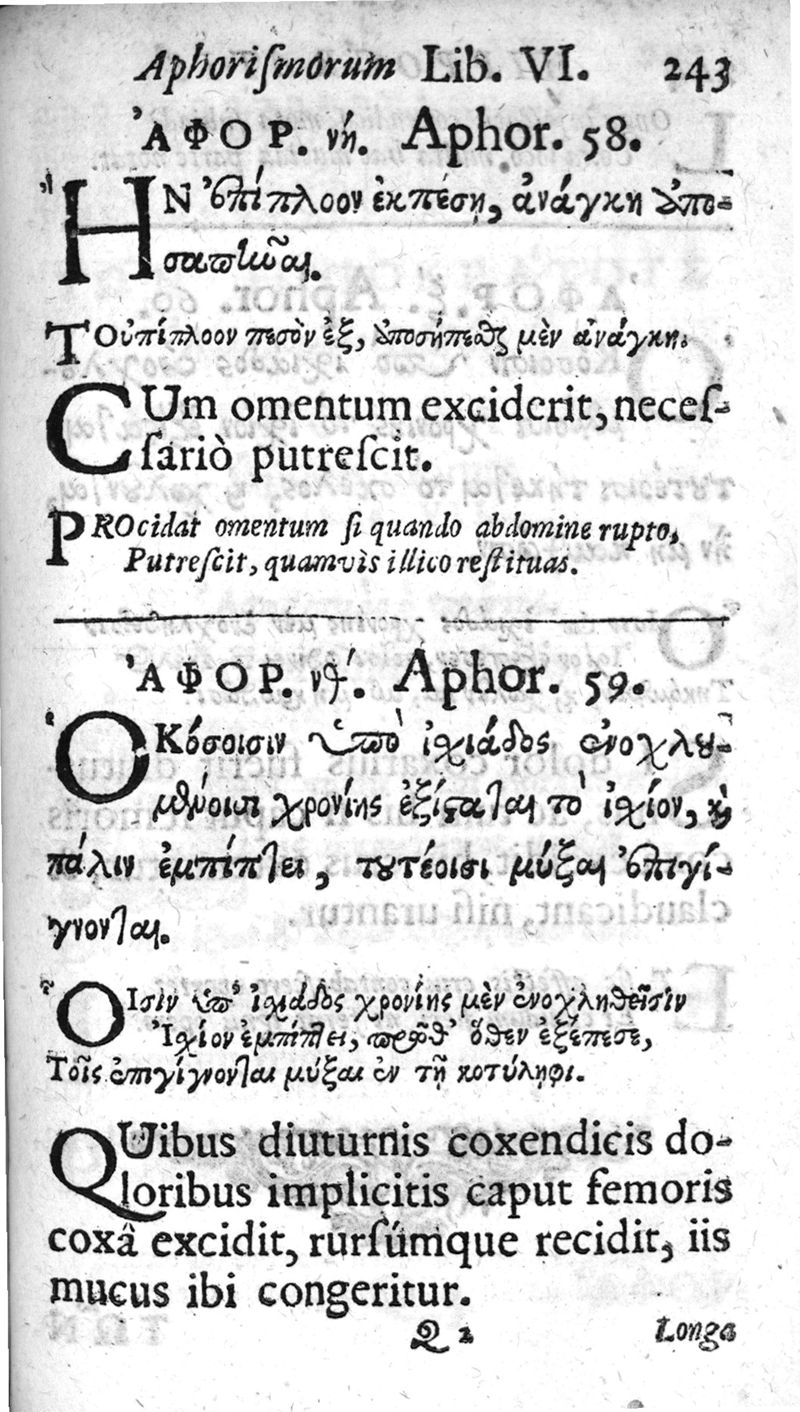 Aphoriſmorum Lib. VI. 243
ἈΦΟΡ. νή. Aphor. 58.
ἪΝ ἐπίπλοον ἐκπέσῃ, ἀνάγκη ἀπο-
σαπῆναι.
ΤΟὐπίπλοον πεσὸν ἐξ, ἀποσήπεθ μὲν ἀνάγκη.
CUm omentum exciderit, neceſ-
ſariò putreſcit.
PROcidat omentum ſi quando abdomine rupto,
Putreſcit, quamvìs illico reſtituas.
ἈΦΟΡ. νθ΄. Aphor. 59.
ὉΚόσοισιν ὑπὸ ἰχιάδος ἐνοχλου-
μένοισι χρονίης ἐξίσταται τὸ ἰχίον, καὶ
πάλιν ἐμπίπτει, τουτέοισι μύξαι ἐπιγί-
γνονται.
ὋΙσὶν ὑπ' ἰχιάδος χρονίης μὲν ἐνοχληθεῖσιν
Ἰχίον ἐμπίπτει, ὅθεν ἐξέπεσε,
Τοῖς ἐπιγίγνονται μύξαι ἐν τῇ κοτύληφι.
QUibus diuturnis coxendicis do-
loribus implicitis caput femoris
coxâ excidit, rurſúmque recidit, iis
mucus ibi congeritur.
Q 2 Longa